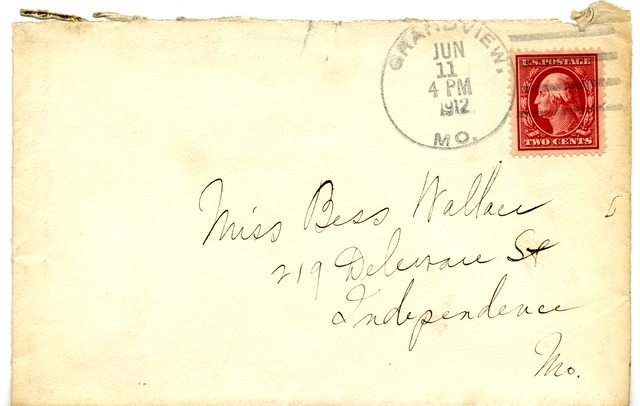 GRANDVIEW,
JUN
11
4 PM
1912
MO.
U.S. POSTAGE
TWO CENTS
Miss Bess Wallace
219 Delaware St
Independence
Mo.